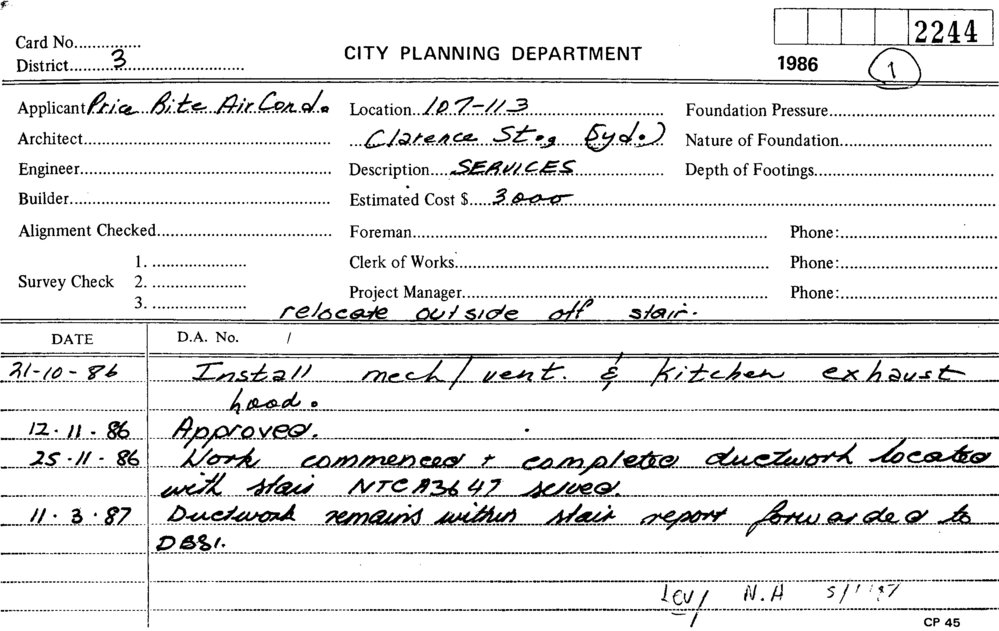 2244
Card No.
District 3
CITY PLANNING DEPARTMENT
1986 1
Applicant Price Bite Air. Cond. Location 107-113 Foundation Pressure
Architect Clarence St., Syd.) Nature of Foundation
Engineer Description SERVICES Depth of Footings
Builder Estimated Cost $ 3000
Alignment Checked Foreman Phone:
1. Clerk of Works Phone:
Survey Check 2.
3. Project Manager Phone:
relocate outside off stair.
DATE D.A. No. /
21-10-86 Install mech/vent. & Kitchen exhaust
hood.
12.11.86 Approved.
25.11.86 Work commenced + completed ductwork located
with stair NTCA3647 served.
11.3.87 Ductwork remains within stair report forwarded to
DBS1.
Levy N.A
CP 45